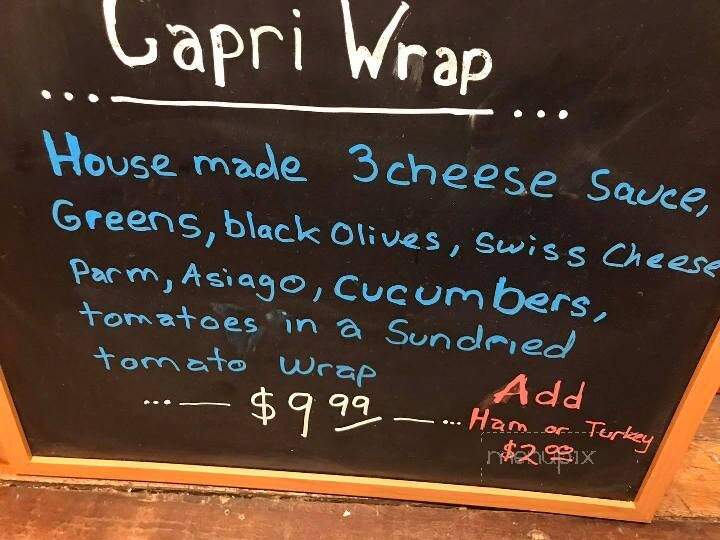 Capri Wrap
House made 3 cheese Sauce,
Greens, black Olives, Swiss Cheese
Parm, Asiago, Cucumbers,
tomatoes in a Sundried
tomato wrap
$9.99
Add
Ham or Turkey
menupix